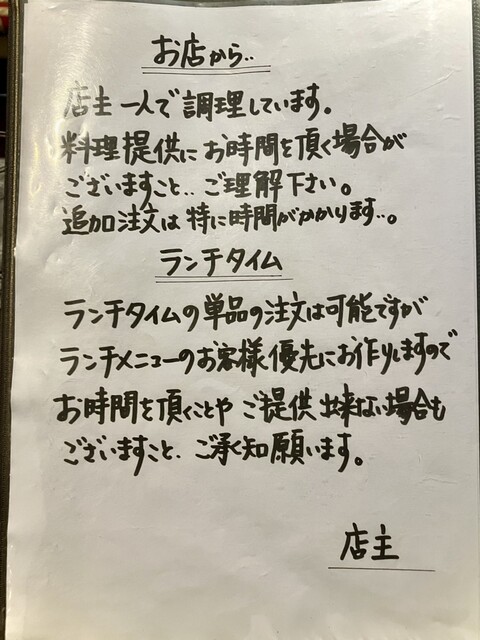 お店から‥
店主一人で調理しています。
料理提供にお時間を頂く場合が
ございますこと‥ご理解下さい。
追加注文は特に時間がかかります‥。
ランチタイム
ランチタイムの単品の注文は可能ですが
ランチメニューのお客様優先にお作りしますので
お時間を頂くことやご提供出来ない場合も
ございますこと‥ご承知願います。
店主